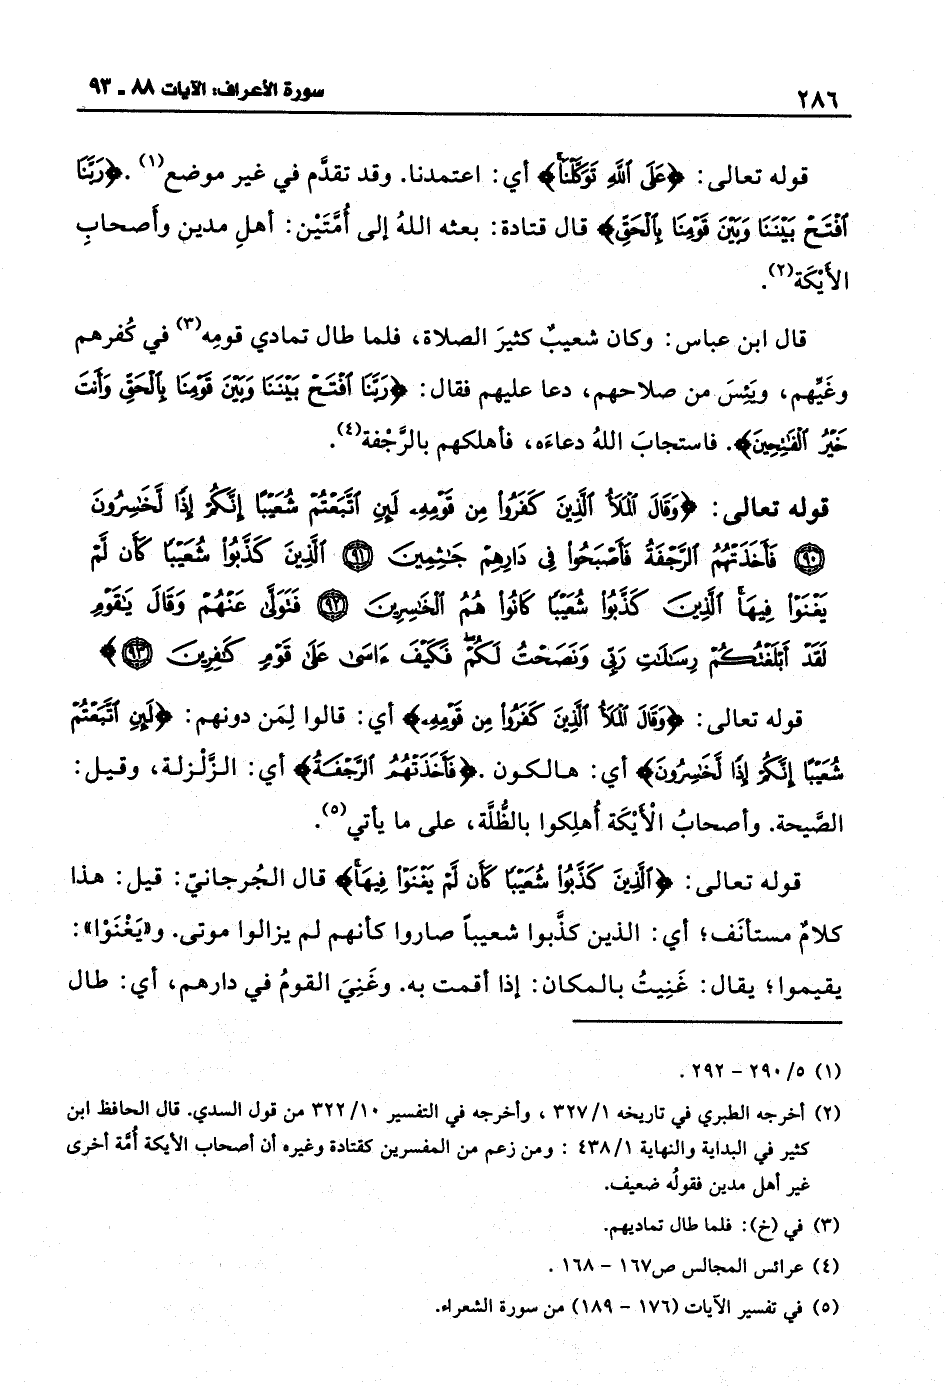 ٢٨٦ سورة الأعراف: الآيات ٨٨ ـ ٩٣
قوله تعالى: ﴿عَلَى ٱللَّهِ تَوَكَّلْنَاۚ﴾ أي: اعتمدنا. وقد تقدَّم في غير موضع(١). ﴿رَبَّنَا
ٱفْتَحْ بَيْنَنَا وَبَيْنَ قَوْمِنَا بِٱلْحَقِّ﴾ قال قتادة: بعثه اللهُ إلى أُمَّتَيْن: أهلِ مدين وأصحابِ
الأَيْكَة(٢).
قال ابن عباس: وكان شعيبٌ كثيرَ الصلاة، فلما طال تمادي قومِه(٣) في كُفرهم
وغَيِّهم، ويَئِسَ من صلاحهم، دعا عليهم فقال: ﴿رَبَّنَا ٱفْتَحْ بَيْنَنَا وَبَيْنَ قَوْمِنَا بِٱلْحَقِّ وَأَنتَ
خَيْرُ ٱلْفَٰتِحِينَ﴾. فاستجابَ اللهُ دعاءَه، فأهلكهم بالرَّجْفة(٤).
قوله تعالى: ﴿وَقَالَ ٱلْمَلَأُ ٱلَّذِينَ كَفَرُوا۟ مِن قَوْمِهِۦ لَئِنِ ٱتَّبَعْتُمْ شُعَيْبًا إِنَّكُمْ إِذًا لَّخَٰسِرُونَ
٩٠ فَأَخَذَتْهُمُ ٱلرَّجْفَةُ فَأَصْبَحُوا۟ فِى دَارِهِمْ جَٰثِمِينَ ٩١ ٱلَّذِينَ كَذَّبُوا۟ شُعَيْبًا كَأَن لَّمْ
يَغْنَوْا۟ فِيهَاۚ ٱلَّذِينَ كَذَّبُوا۟ شُعَيْبًا كَانُوا۟ هُمُ ٱلْخَٰسِرِينَ ٩٢ فَتَوَلَّىٰ عَنْهُمْ وَقَالَ يَٰقَوْمِ
لَقَدْ أَبْلَغْتُكُمْ رِسَٰلَٰتِ رَبِّى وَنَصَحْتُ لَكُمْۖ فَكَيْفَ ءَاسَىٰ عَلَىٰ قَوْمٍ كَٰفِرِينَ ٩٣﴾
قوله تعالى: ﴿وَقَالَ ٱلْمَلَأُ ٱلَّذِينَ كَفَرُوا۟ مِن قَوْمِهِۦ﴾ أي: قالوا لِمَن دونهم: ﴿لَئِنِ ٱتَّبَعْتُمْ
شُعَيْبًا إِنَّكُمْ إِذًا لَّخَٰسِرُونَ﴾ أي: هالكون. ﴿فَأَخَذَتْهُمُ ٱلرَّجْفَةُ﴾ أي: الزَّلْزلة، وقيل:
الصَّيحة. وأصحابُ الْأَيْكَة أُهلِكوا بالظُّلَّة، على ما يأتي(٥).
قوله تعالى: ﴿ٱلَّذِينَ كَذَّبُوا۟ شُعَيْبًا كَأَن لَّمْ يَغْنَوْا۟ فِيهَاۚ﴾ قال الجُرجانيّ: قيل: هذا
كلامٌ مستأنَف؛ أي: الذين كذَّبوا شعيباً صاروا كأنهم لم يزالوا موتى. و«يَغْنَوْا»:
يقيموا؛ يقال: غَنِيتُ بالمكان: إذا أقمت به. وغَنِيَ القومُ في دارهم، أي: طال
(١) ٥/ ٢٩٠ - ٢٩٢ .
(٢) أخرجه الطبري في تاريخه ١/ ٣٢٧ ، وأخرجه في التفسير ١٠/ ٣٢٢ من قول السدي. قال الحافظ ابن
كثير في البداية والنهاية ١/ ٤٣٨ : ومن زعم من المفسرين كقتادة وغيره أن أصحاب الأيكة أُمَّة أخرى
غير أهل مدين فقولُه ضعيف.
(٣) في (خ): فلما طال تماديهم.
(٤) عرائس المجالس ص١٦٧ - ١٦٨ .
(٥) في تفسير الآيات (١٧٦ - ١٨٩) من سورة الشعراء.